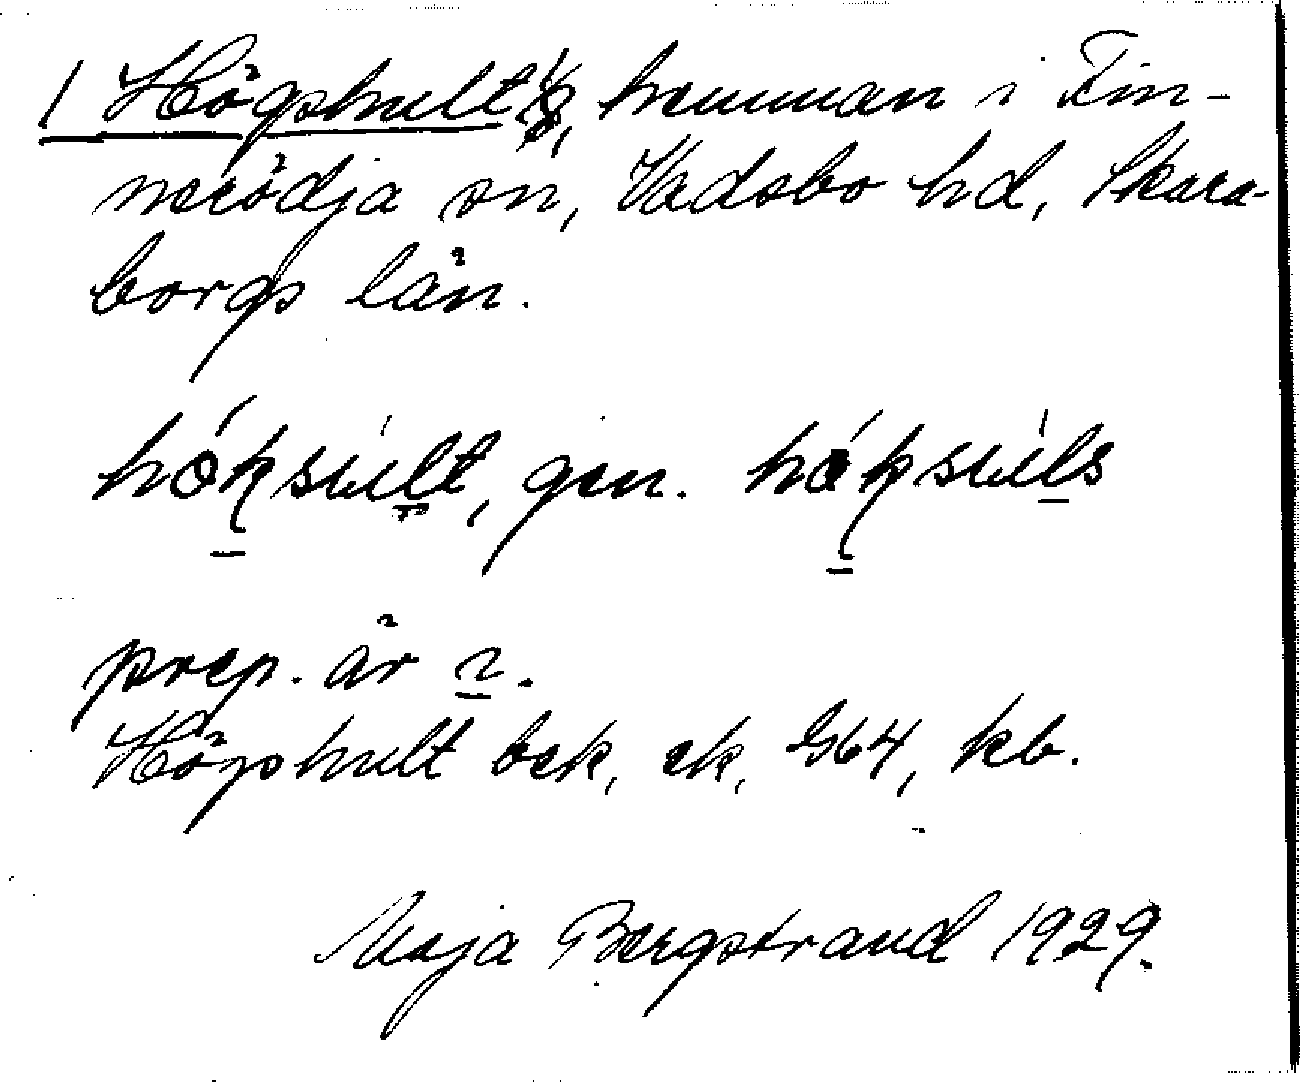 1 Högshult ⅛, hemman i Fin-
nerödja sn, Vadsbo hd, Skara-
borgs län.
hóksúlt, gen. hóksúls
prep. är i.
Högshult bek, ek, G64, kb.
Maja Bergstrand 1929.